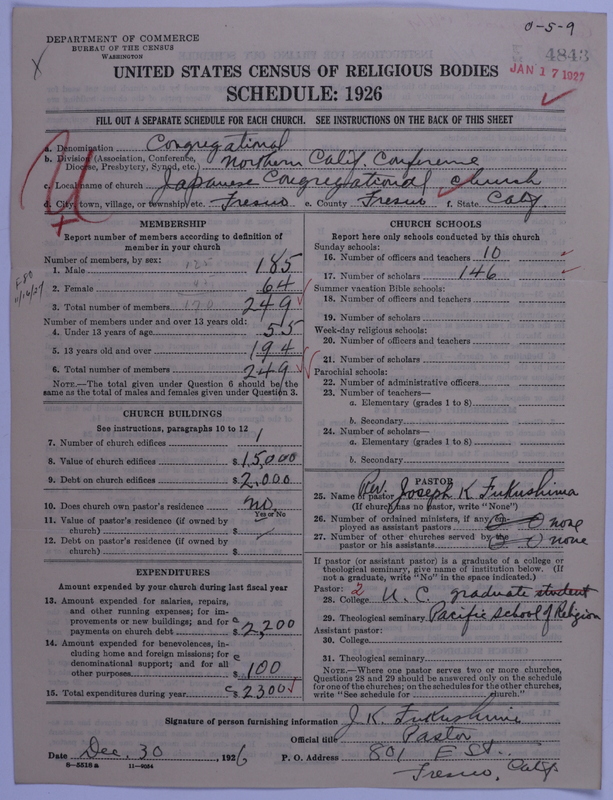 0-5-9
DEPARTMENT OF COMMERCE
BUREAU OF THE CENSUS
WASHINGTON
4843
JAN 17 1927
UNITED STATES CENSUS OF RELIGIOUS BODIES
SCHEDULE: 1926
FILL OUT A SEPARATE SCHEDULE FOR EACH CHURCH. SEE INSTRUCTIONS ON THE BACK OF THIS SHEET
a. Denomination Congregational
b. Division (Association, Conference, Diocese, Presbytery, Synod, etc.) Northern Calif. Conference
c. Local name of church Japanese Congregational Church
d. City, town, village, or township, etc. Fresno e. County Fresno f. State Calif.
MEMBERSHIP
Report number of members according to definition of
member in your church
Number of members, by sex:
1. Male 185
2. Female 64
3. Total number of members 249
Number of members under and over 13 years old:
4. Under 13 years of age 55
5. 13 years old and over 194
6. Total number of members 249
NOTE.—The total given under Question 6 should be the
same as the total of males and females given under Question 3.
CHURCH BUILDINGS
See instructions, paragraphs 10 to 12
7. Number of church edifices 1
8. Value of church edifices $15,000
9. Debt on church edifices $2,000
10. Does church own pastor's residence no.
Yes or No
11. Value of pastor's residence (if owned by
church) $
12. Debt on pastor's residence (if owned by
church) $
EXPENDITURES
Amount expended by your church during last fiscal year
13. Amount expended for salaries, repairs,
and other running expenses; for im-
provements or new buildings; and for
payments on church debt $2,200
14. Amount expended for benevolences, in-
cluding home and foreign missions; for
denominational support; and for all
other purposes $100
15. Total expenditures during year $2300
CHURCH SCHOOLS
Report here only schools conducted by this church
Sunday schools:
16. Number of officers and teachers 10
17. Number of scholars 146
Summer vacation Bible schools:
18. Number of officers and teachers
19. Number of scholars
Week-day religious schools:
20. Number of officers and teachers
21. Number of scholars
Parochial schools:
22. Number of administrative officers
23. Number of teachers—
a. Elementary (grades 1 to 8)
b. Secondary
24. Number of scholars—
a. Elementary (grades 1 to 8)
b. Secondary
PASTOR
25. Name of pastor Rev. Joseph K Fukushima
(If church has no pastor, write "None")
26. Number of ordained ministers, if any, em-
ployed as assistant pastors none
27. Number of other churches served by the
pastor or his assistants none
If pastor (or assistant pastor) is a graduate of a college or
theological seminary, give name of institution below. (If
not a graduate, write "No" in the space indicated.)
Pastor: 2
28. College U. C. graduate student
29. Theological seminary Pacific School of Religion
Assistant pastor:
30. College
31. Theological seminary
NOTE.—Where one pastor serves two or more churches,
Questions 28 and 29 should be answered only on the schedule
for one of the churches; on the schedules for the other churches,
write "See schedule for church."
Signature of person furnishing information J. K. Fukushima
Official title Pastor
Date Dec. 30 1926 P. O. Address 801 E St.
Fresno, Calif
8-5518a 11-9084